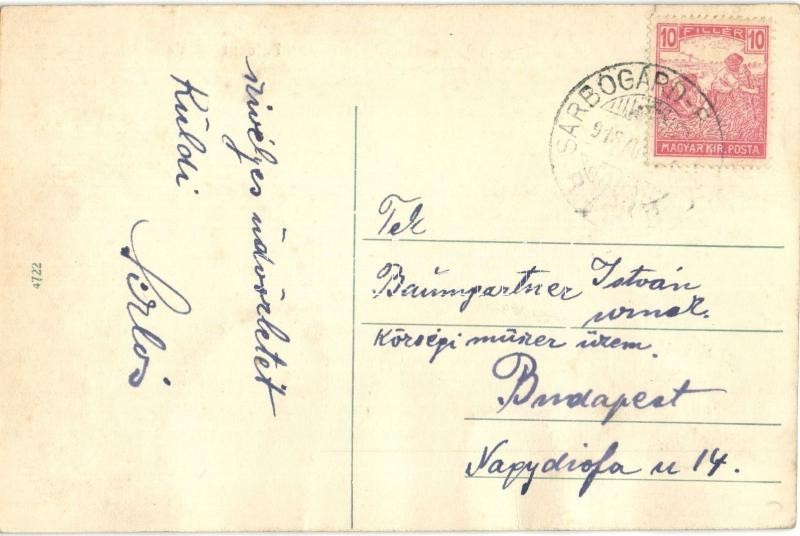 szivélyes üdvözletét
Küldi
4722
10 FILLÉR 10
MAGYAR KIR. POSTA
SÁRBOGÁRD
Tek
Baumgartner István
urnak.
Községi műszer üzem.
Budapest
Nagydiofa u 14.